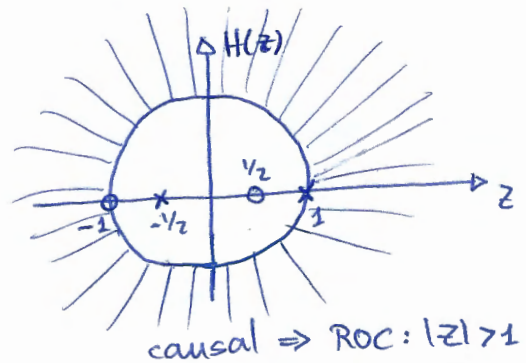 H(z)
1/2
-1
-1/2
1
z
causal ⇒ ROC: |z|>1